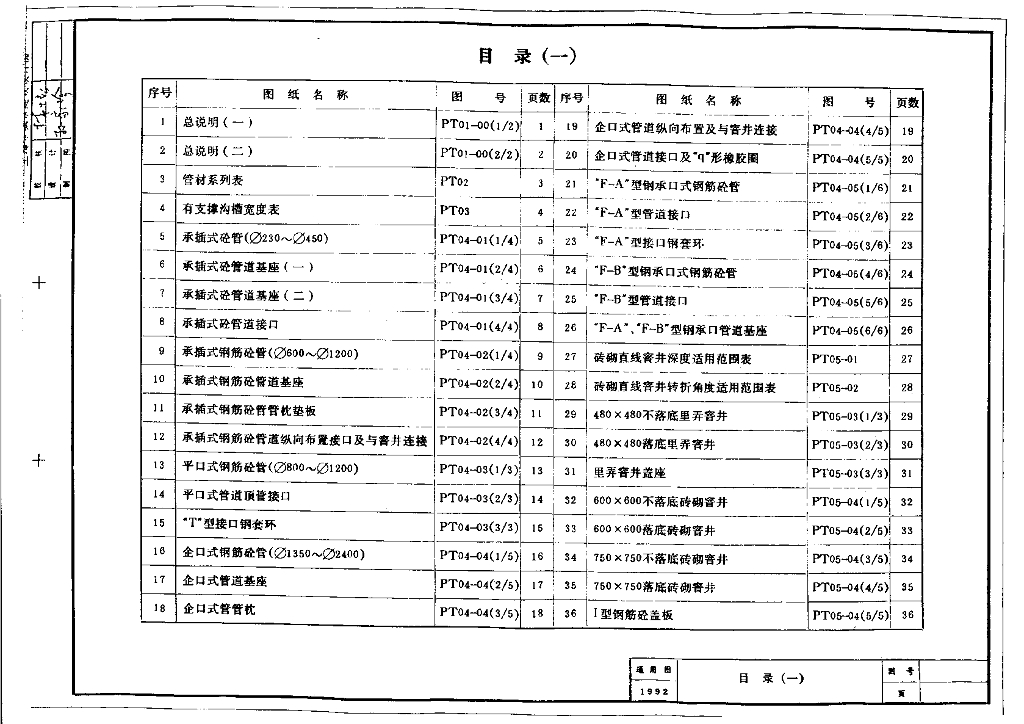 目 录 (一)
序号 图纸名称 图号 页数 序号 图纸名称 图号 页数
1 总说明(一) PT01-00(1/2) 1 19 企口式管道纵向布置及与窨井连接 PT04-04(4/5) 19
2 总说明(二) PT01-00(2/2) 2 20 企口式管道接口及"q"形橡胶圈 PT04-04(5/5) 20
3 管材系列表 PT02 3 21 "F-A"型钢承口式钢筋砼管 PT04-05(1/6) 21
4 有支撑沟槽宽度表 PT03 4 22 "F-A"型管道接口 PT04-05(2/6) 22
5 承插式砼管(∅230~∅450) PT04-01(1/4) 5 23 "F-A"型接口钢套环 PT04-05(3/6) 23
6 承插式砼管道基座(一) PT04-01(2/4) 6 24 "F-B"型钢承口式钢筋砼管 PT04-05(4/6) 24
7 承插式砼管道基座(二) PT04-01(3/4) 7 25 "F-B"型管道接口 PT04-05(5/6) 25
8 承插式砼管道接口 PT04-01(4/4) 8 26 "F-A"、"F-B"型钢承口管道基座 PT04-05(6/6) 26
9 承插式钢筋砼管(∅600~∅1200) PT04-02(1/4) 9 27 砖砌直线窨井深度适用范围表 PT05-01 27
10 承插式钢筋砼管道基座 PT04-02(2/4) 10 28 砖砌直线窨井转折角度适用范围表 PT05-02 28
11 承插式钢筋砼管管枕垫板 PT04-02(3/4) 11 29 480×480不落底里弄窨井 PT05-03(1/3) 29
12 承插式钢筋砼管道纵向布置接口及与窨井连接 PT04-02(4/4) 12 30 480×480落底里弄窨井 PT05-03(2/3) 30
13 平口式钢筋砼管(∅800~∅1200) PT04-03(1/3) 13 31 里弄窨井盖座 PT05-03(3/3) 31
14 平口式管道顶管接口 PT04-03(2/3) 14 32 600×600不落底砖砌窨井 PT05-04(1/5) 32
15 "T"型接口钢套环 PT04-03(3/3) 15 33 600×600落底砖砌窨井 PT05-04(2/5) 33
16 企口式钢筋砼管(∅1350~∅2400) PT04-04(1/5) 16 34 750×750不落底砖砌窨井 PT05-04(3/5) 34
17 企口式管道基座 PT04-04(2/5) 17 35 750×750落底砖砌窨井 PT05-04(4/5) 35
18 企口式管管枕 PT04-04(3/5) 18 36 I型钢筋砼盖板 PT05-04(5/5) 36
通用图 目 录 (一) 图号
1992 页